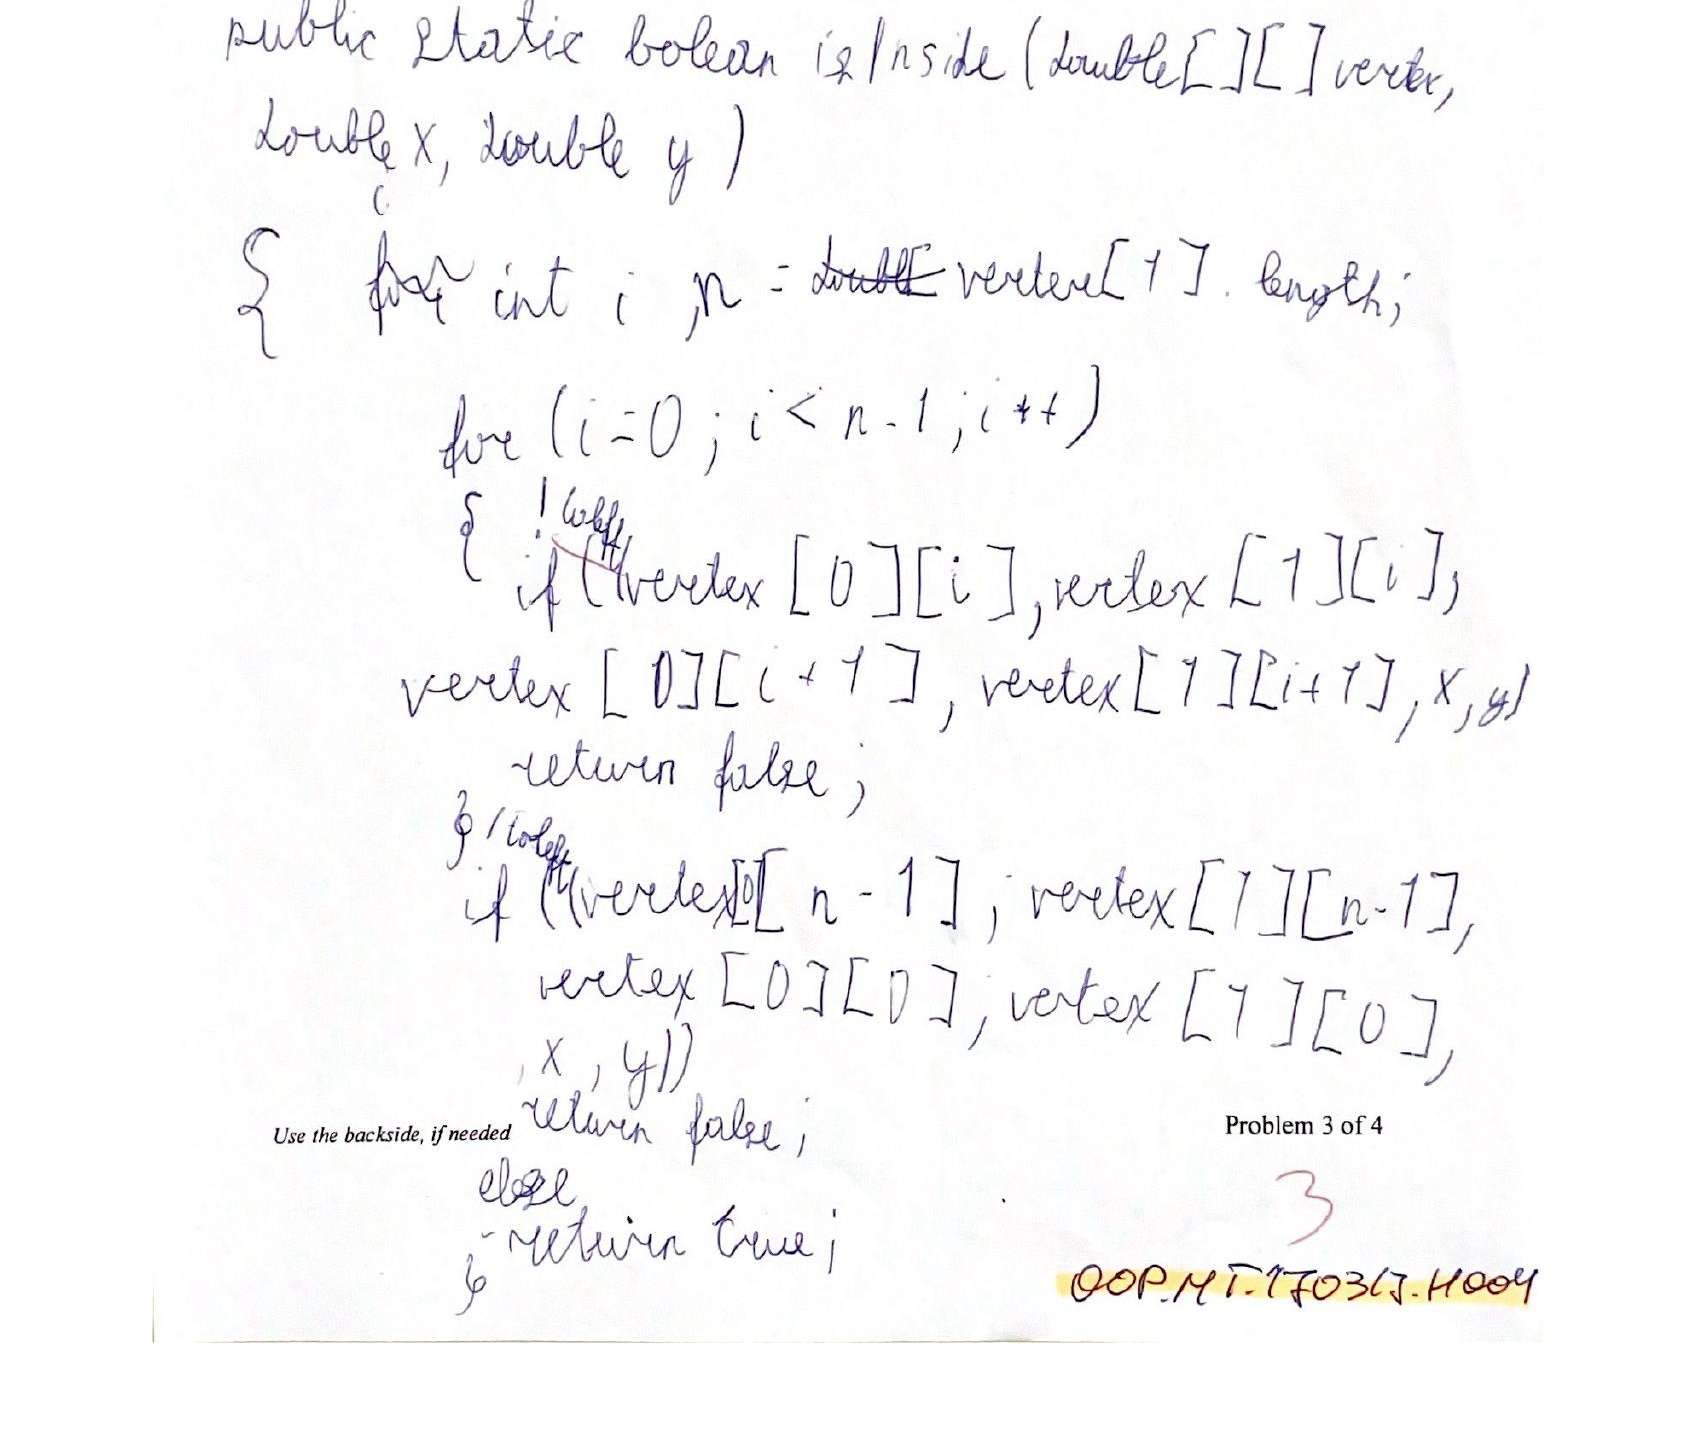 public static bolean isInside (double[][] vertex,
double x, double y)
{ int i, n = vertex[1].length;
for (i=0; i < n-1; i++)
{ !Coleft
if ((vertex [0][i], vertex [1][i],
vertex [0][i+1], vertex[1][i+1], x, y)
return false;
} !Coleft
if ((vertex[0][n-1], vertex[1][n-1],
vertex [0][0], vertex [1][0],
, x, y))
return false;
Use the backside, if needed
Problem 3 of 4
else
3
return true;
}